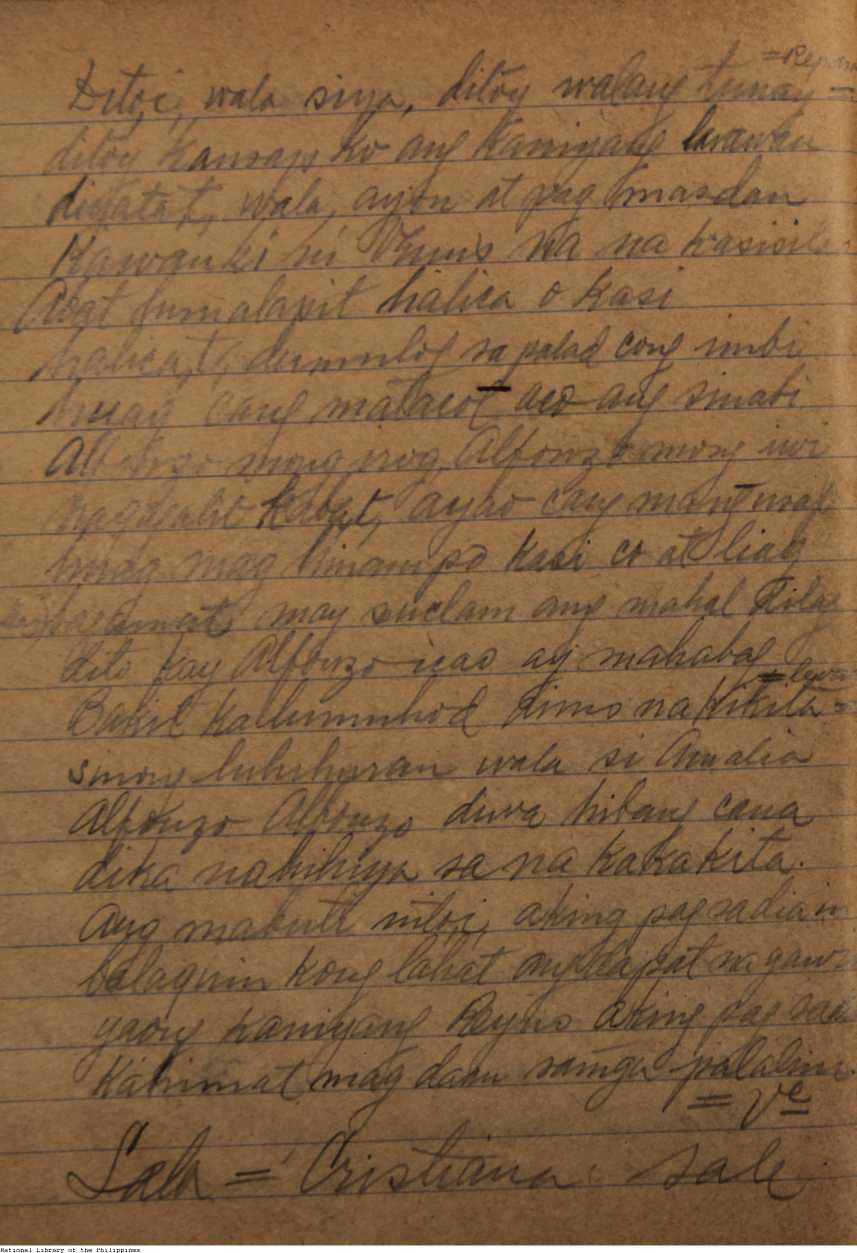 Dito,i, wala siya, ditoy walang tunay =
ditoy kausap ko ang kaniyang larawan
diyata,t, wala, ayon at pag masdan
Kawanki ni Venus na na
at lumalapit halica o kasi
halica,t, dumulog sa palad cong imbi
huag cang matacot aco ang sinabi
Alfonzo mong irog Alfonzo mong iwi
kabat, ayao cang
huag mag hinampo kasi co at liag
may suclam ang mahal
dito kay Alfonzo icao ay mahabag
Bakit ka lumuhod dimo na kikita =
sinong luluhuran wala si Amalia
Alfonzo Alfonzo diwa hibang cana
dika nahihiya sa na kakakita.
Ang mabuti nitoi, aking pag sadiain
balaquin kong lahat ang dapat na gawin
yaong kaniyang Reyno aking pag
Kahimat mag daan sa mga palalim.
= Ve
Sala = Cristiana. Sale
National Library of the Philippines